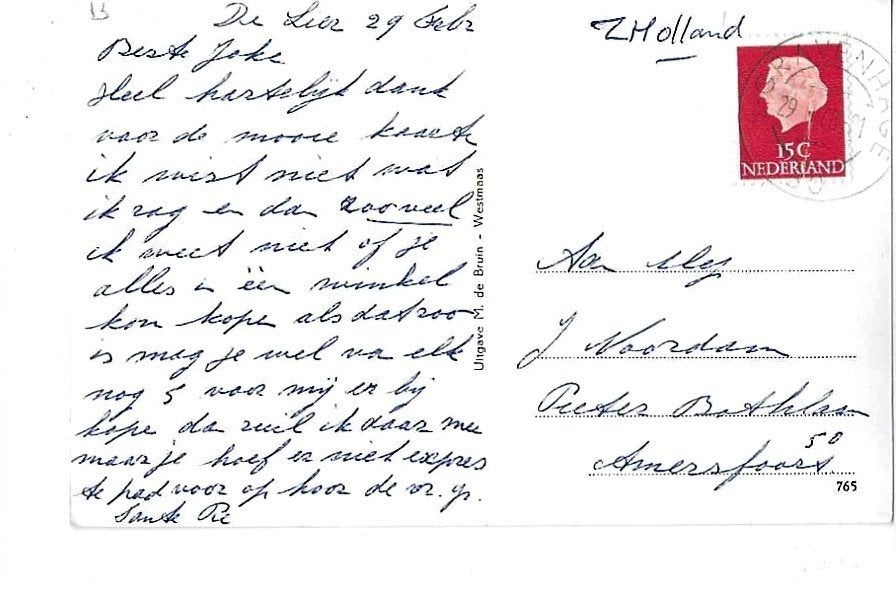 De Lier 29 Febr
Beste Joke
Heel hartelijk dank
voor de mooie kaarte
ik wist niet wat
ik zag en dan zooveel
ik weet niet of je
alles in één winkel
kon kope als dat zoo
is mag je wel va elk
nog 5 voor mij er bij
kope da ruil ik daar mee
maar je hoef er niet expres
te pad voor op hoor de vr. gr.
Tante Pie
Uitgave M. de Bruin - Westmaas
Z Holland
'S-GRAVENHAGE
29
15C
NEDERLAND
Aan Mej
J Noordam
Pieter Bothlaan
50
Amersfoort.
765